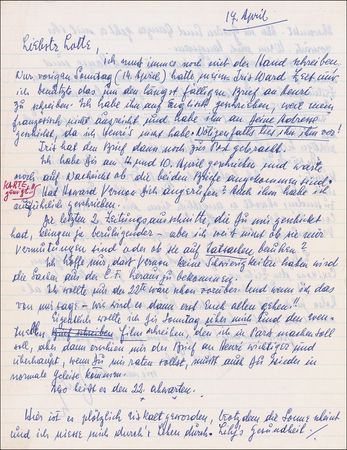 17. April
Liebste Lotte,
ich muss immer noch mit der Hand schreiben.
Nur vorigen Sonntag (14. April) hatte
ich benützte das um den längst fälligen Brief an
zu schreiben. Ich habe ihm auf Englisch geschrieben, weil mein
französisch nicht ausreicht und habe ihn an Deine Adresse
geschickt, da ich Henri's nicht habe. Nötigenfalls lies ihn ihm vor!
Iris hat den Brief dann noch zur Post gebracht.
Ich habe Dir am 4. und 10. April geschrieben und warte
noch auf Nachricht ob die beiden Briefe angekommen sind.
KARTE
Hat Howard Vernon Dich angerufen? Auch ihm habe ich
ausführlich geschrieben.
Die letzten 2 Zeitungsausschnitte, die Du mir geschickt
hast, klingen ja beruhigender - aber ich weiß nicht ob sie nur
Vermutungen sind oder ob sie auf Tatsachen
Ich hoffe nur, dass Vernon keine Schwierigkeiten haben wird
die Sachen aus der C.F. heraus zu bekommen.
Ich wollte nur der 22te wäre schon vorüber und wenn ich das
von mir sage - wie wird es dann erst Euch allen gehen!!
Eigentlich wollte ich Dir Sonntag über mich und den
Film schreiben, den ich in Paris machen soll
will, aber dann erschien mir der Brief an Henri wichtiger und
überhaupt wenn Du mir raten sollst, müsst auch Ihr Frieden in
normale Geleise kommen.
Also heißt es den 22. abwarten.
Hier ist es plötzlich eiskalt geworden, trotzdem die Sonne scheint
und ich niesse mich durch's Leben durch. Lily's Gesundheit!